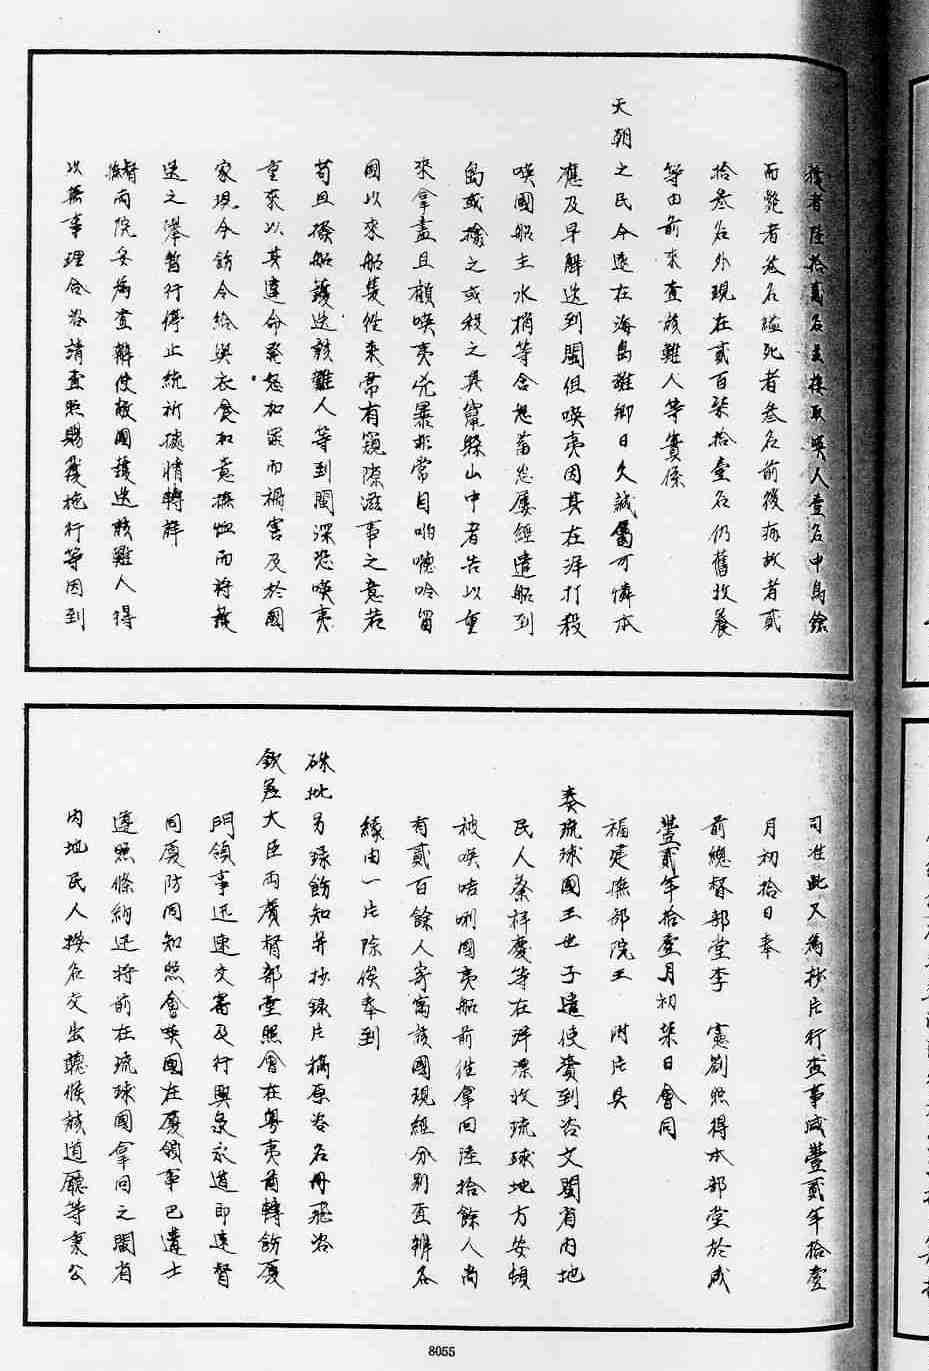 獲者陸拾貳名美採取喚人壹名中鳥鎗
而斃者叁名縊死者叁名前後病故者貳
拾叁名外現在貳百柒拾壹名仍舊收養
等由前來查該難人等實係
天朝之民今遠在海島離鄉日久誠屬可憐本
應及早解送到閩但喚夷因其在洋打殺
喚國船主水梢等含怒蓄忿屢經遣船到
島或擒之或殺之其竄躲山中者告以重
來拿盡且顧喚夷兇暴形常目咱嗹呤留
國以來船隻往來常有窺隙滋事之意若
苟且撥船護送該難人等到閩深恐喚夷
重來以其違命發怒加罪而禍害及於國
家現今飭令給與衣食加意撫恤而將護
送之舉暫行停止統祈據情轉詳
督撫兩院妥為查辦使敝國護送該難人得
以無事理合咨請查照賜覆施行等因到
司准此又為抄片行查事咸豐貳年拾壹
月初拾日奉
前總督部堂季 憲劄照得本部堂於咸
豐貳年拾壹月初柒日會同
福建撫部院王 附片具
奏琉球國王世子遣使賫到咨文閩省內地
民人蔡祥慶等在洋漂收琉球地方安頓
被喚咭唎國夷船前往拿回陸拾餘人尚
有貳百餘人寄寓該國現經分別查辦各
緣由一片除俟奉到
硃批另錄飭知並抄錄片稿原咨名冊飛咨
欽差大臣兩廣督部堂照會在粵夷酋轉飭廈
門領事迅速文寄及行興泉永道即速督
同廈防同知照會喚國在廈領事巴遘士
遵照條約迅將前在琉球國拿回之閩省
內地民人按名交出聽候該道廳等秉公
8055